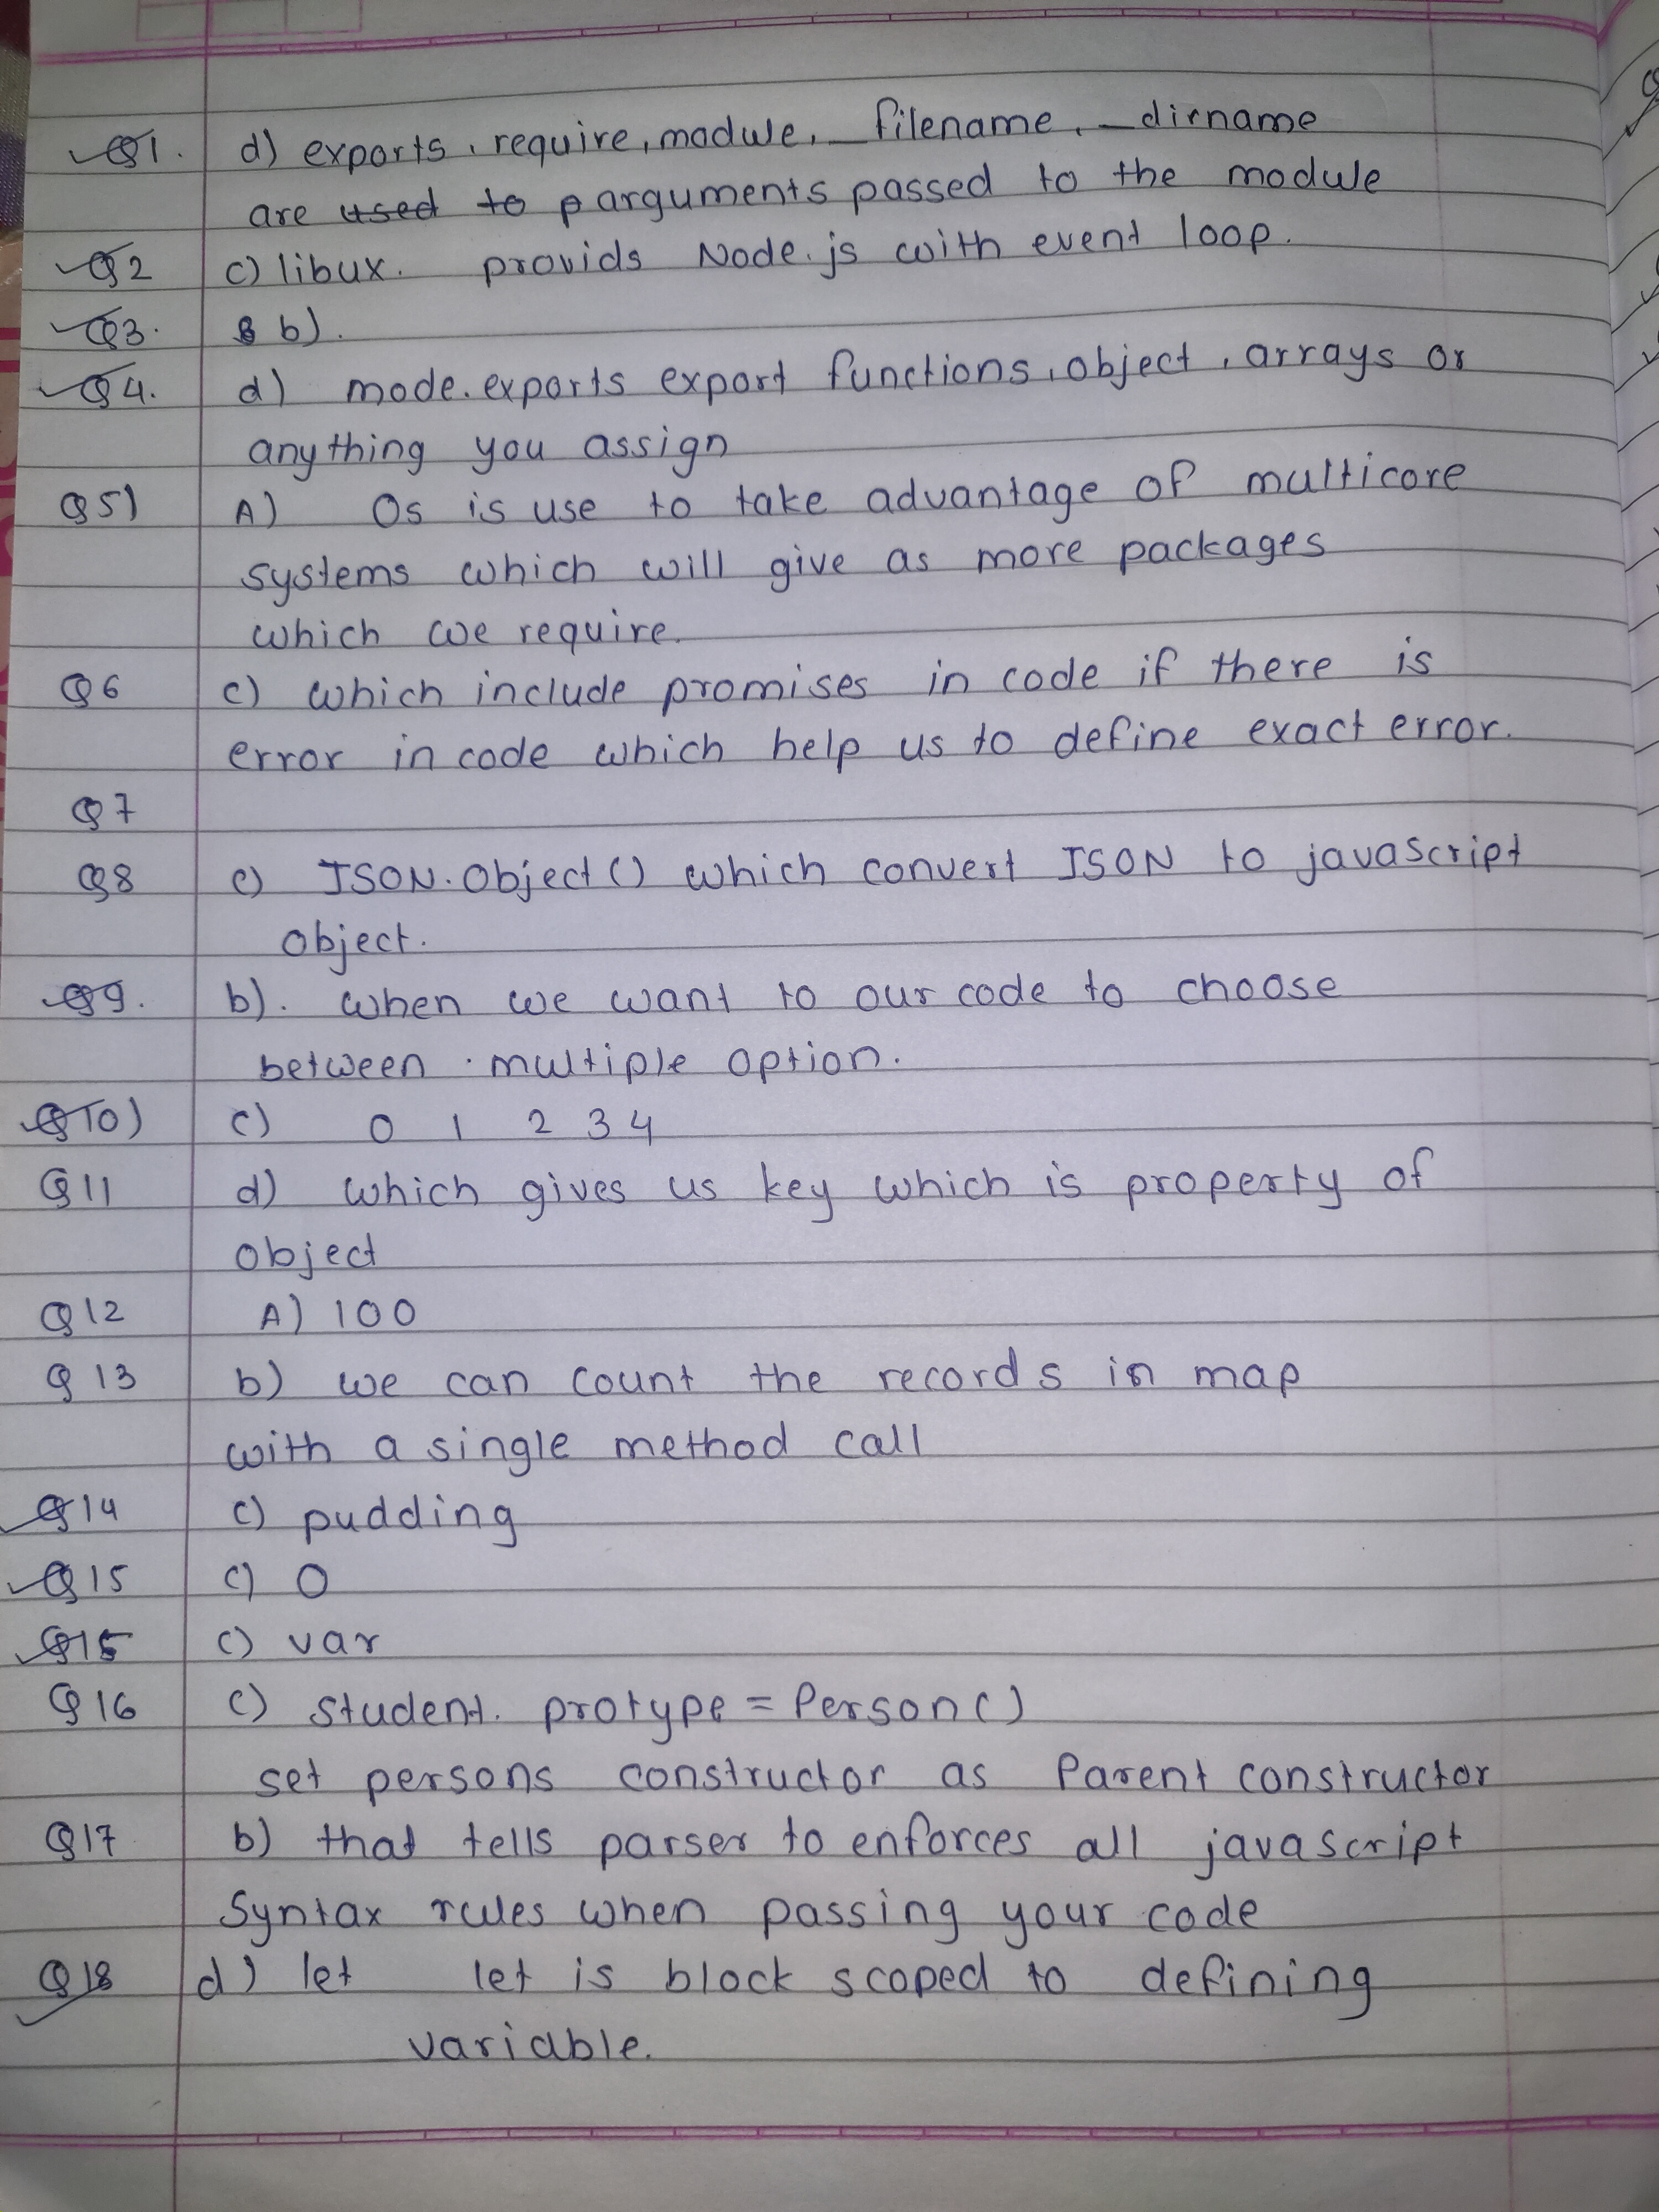 Q1. d) exports, require, module, _ filename, _ dirname
are used to p arguments passed to the module
Q2 c) libux. provids Node.js with event loop.
Q3. b).
Q4. d) mode.exports export functions, object, arrays or
anything you assign
Q5) A) Os is use to take advantage of multicore
systems which will give as more packages
which we require.
Q6 c) which include promises in code if there is
error in code which help us to define exact error.
Q7
Q8 c) JSON.Object() which convert JSON to javascript
object.
Q9. b). when we want to our code to choose
between multiple option.
Q10) c) 0 1 2 3 4
Q11 d) which gives us key which is property of
object
Q12 A) 100
Q13 b) we can count the records in map
with a single method call
Q14 c) pudding
Q15 c) 0
Q15 c) var
Q16 c) student. protype = Person()
set persons constructor as Parent constructor
Q17 b) that tells parser to enforces all javascript
Syntax rules when passing your code
Q18 d) let let is block scoped to defining
variable.